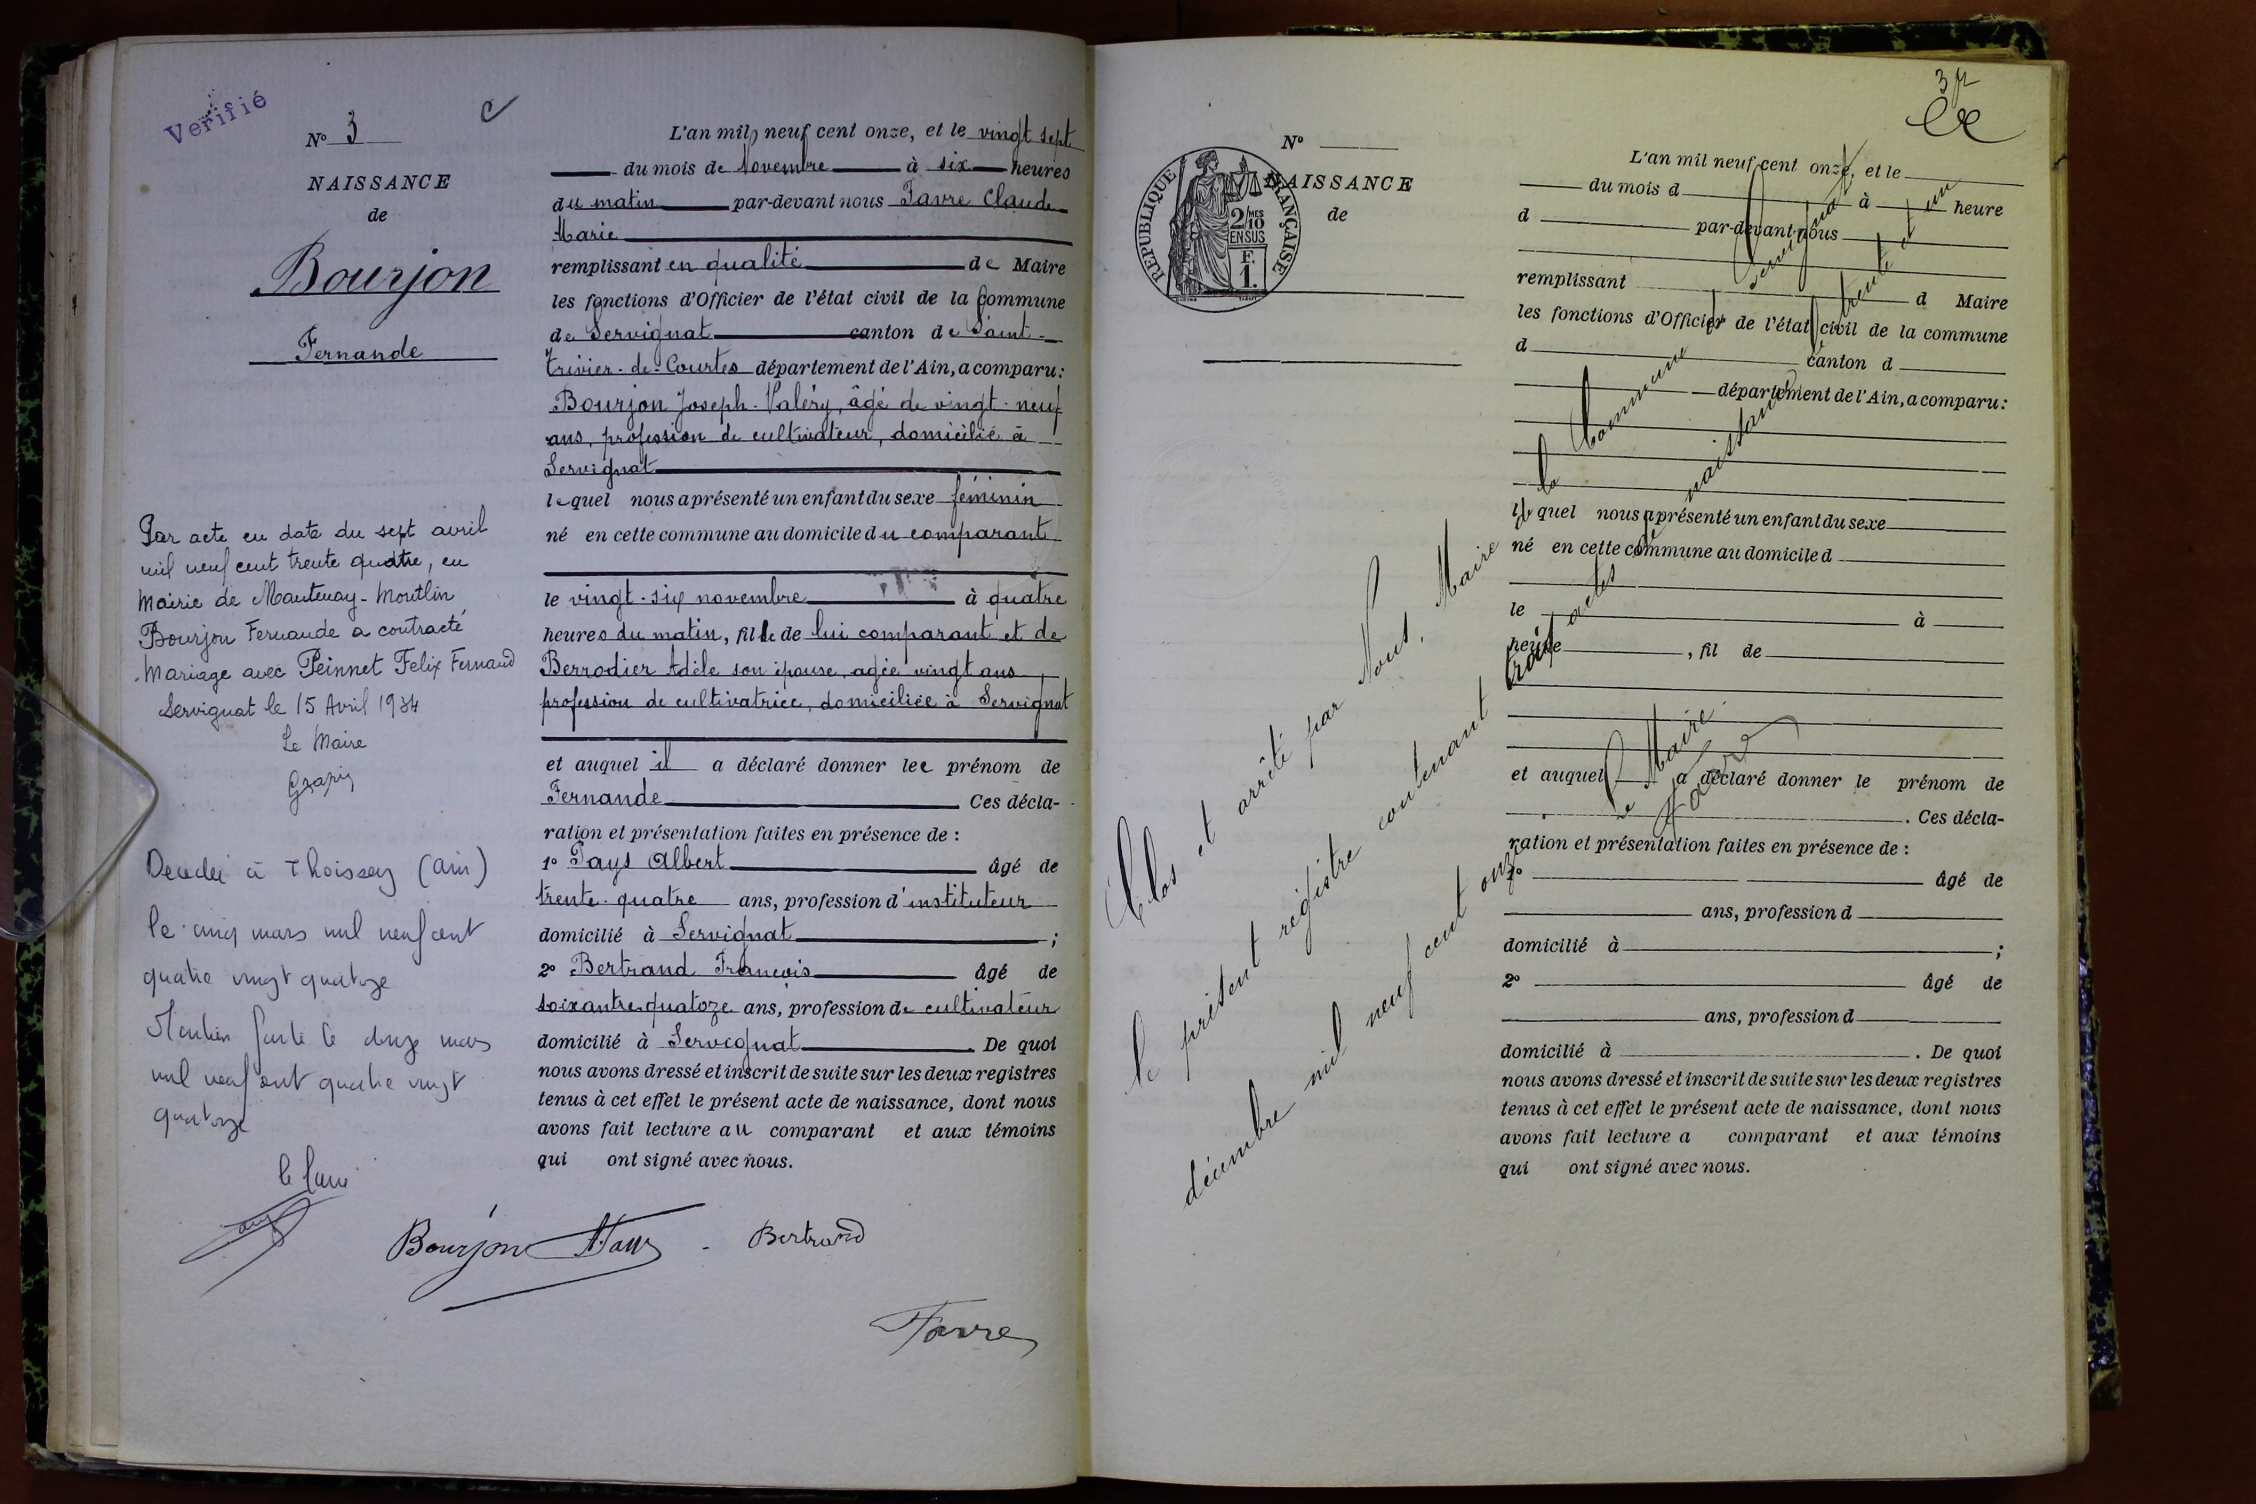 Verifié
c
N° 3
NAISSANCE
de
Bourjon
Fernande
Par acte en date du sept avril
mil neuf cent trente quatre, en
mairie de Mantenay-Montlin
Bourjon Fernande a contracté
mariage avec Peinnet Felix Fernand
Servignat le 15 Avril 1934
Le Maire
Decedée à Thoissey (ain)
le cinq mars mil neuf cent
quatre vingt quatorze
Mention faite le douze mars
mil neuf cent quatre vingt
quatorze
le Maire
L'an mil neuf cent onze, et le vingt sept
du mois de Novembre à six heures
du matin par-devant nous Favre Claude
Marie
remplissant en qualité de Maire
les fonctions d'Officier de l'état civil de la commune
de Servignat canton de Saint-
Trivier-de-Courtes département de l'Ain, a comparu:
Bourjon Joseph-Valéry, âgé de vingt-neuf
ans, profession de cultivateur, domicilié à
Servignat
lequel nous a présenté un enfant du sexe féminin
né en cette commune au domicile du comparant
le vingt-six novembre à quatre
heures du matin, fille de lui comparant et de
Berrodier Adèle son épouse, agée vingt ans,
profession de cultivatrice, domiciliée à Servignat
et auquel il a déclaré donner lee prénom de
Fernande Ces décla-
ration et présentation faites en présence de :
1° Pays Albert âgé de
trente-quatre ans, profession d'instituteur
domicilié à Servignat ;
2° Bertrand François âgé de
soixante-quatoze ans, profession de cultivateur
domicilié à Servignat. De quoi
nous avons dressé et inscrit de suite sur les deux registres
tenus à cet effet le présent acte de naissance, dont nous
avons fait lecture au comparant et aux témoins
qui ont signé avec nous.
Bourjon A. Pays Bertrand
Favre
3
N°
NAISSANCE
de
REPUBLIQUE FRANÇAISE
2/10 MES
EN SUS
F.
1.
L'an mil neuf cent onze, et le
du mois d à heure
d par-devant nous
remplissant d Maire
les fonctions d'Officier de l'état civil de la commune
d canton d
département de l'Ain, a comparu:
lequel nous a présenté un enfant du sexe
né en cette commune au domicile d
le à
heure , fil de
et auquel a déclaré donner le prénom de
. Ces décla-
ration et présentation faites en présence de :
1° âgé de
ans, profession d
domicilié à ;
2° âgé de
ans, profession d
domicilié à . De quoi
nous avons dressé et inscrit de suite sur les deux registres
tenus à cet effet le présent acte de naissance, dont nous
avons fait lecture a comparant et aux témoins
qui ont signé avec nous.
Clos et arrêté par Nous, Maire de la Commune de Servignat,
le présent registre contenant trois actes de naissance, le trente et un
décembre mil neuf cent onze
Le Maire.
Favre